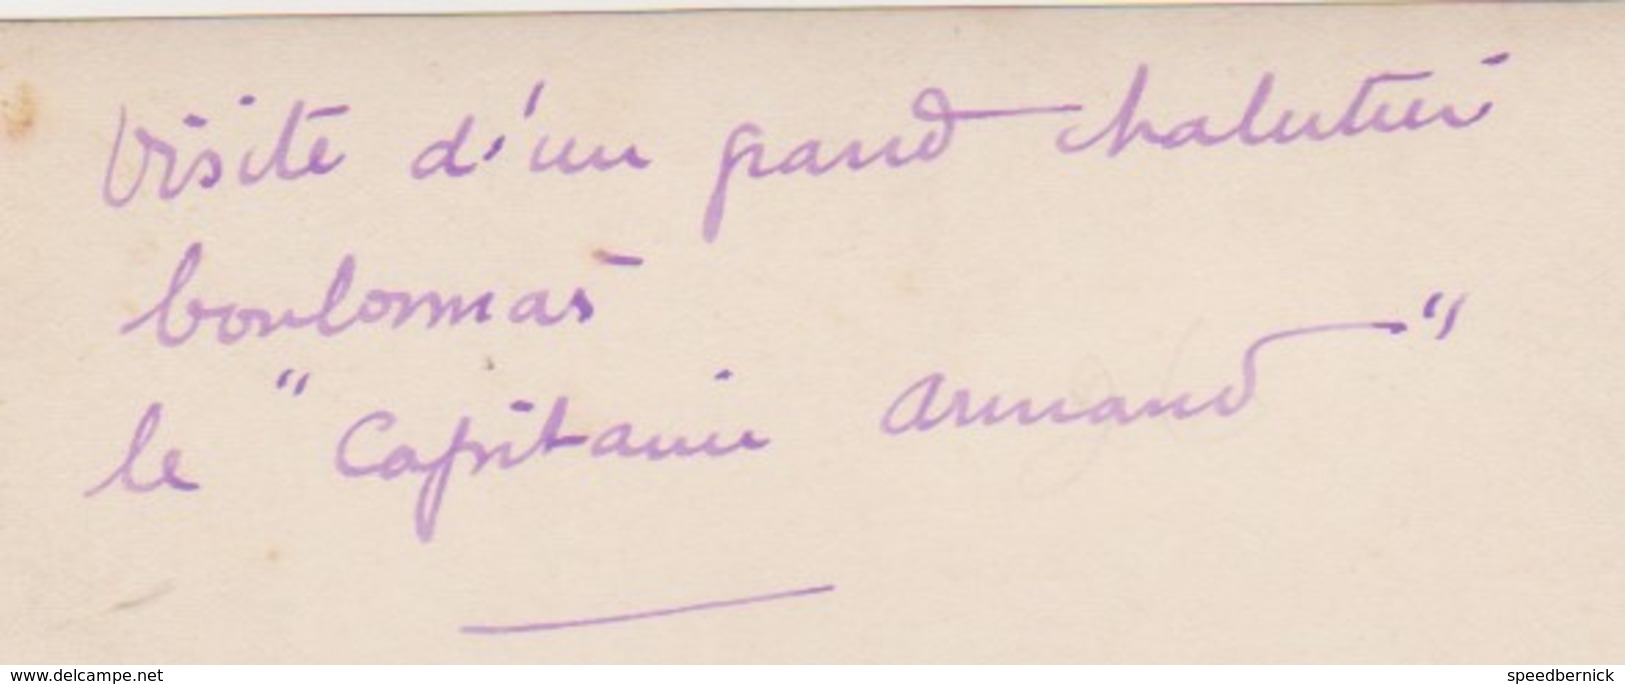 Visite d'un grand chalutier
boulonnais
le "Capitaine Armand"
delcampe.net
speedbernick